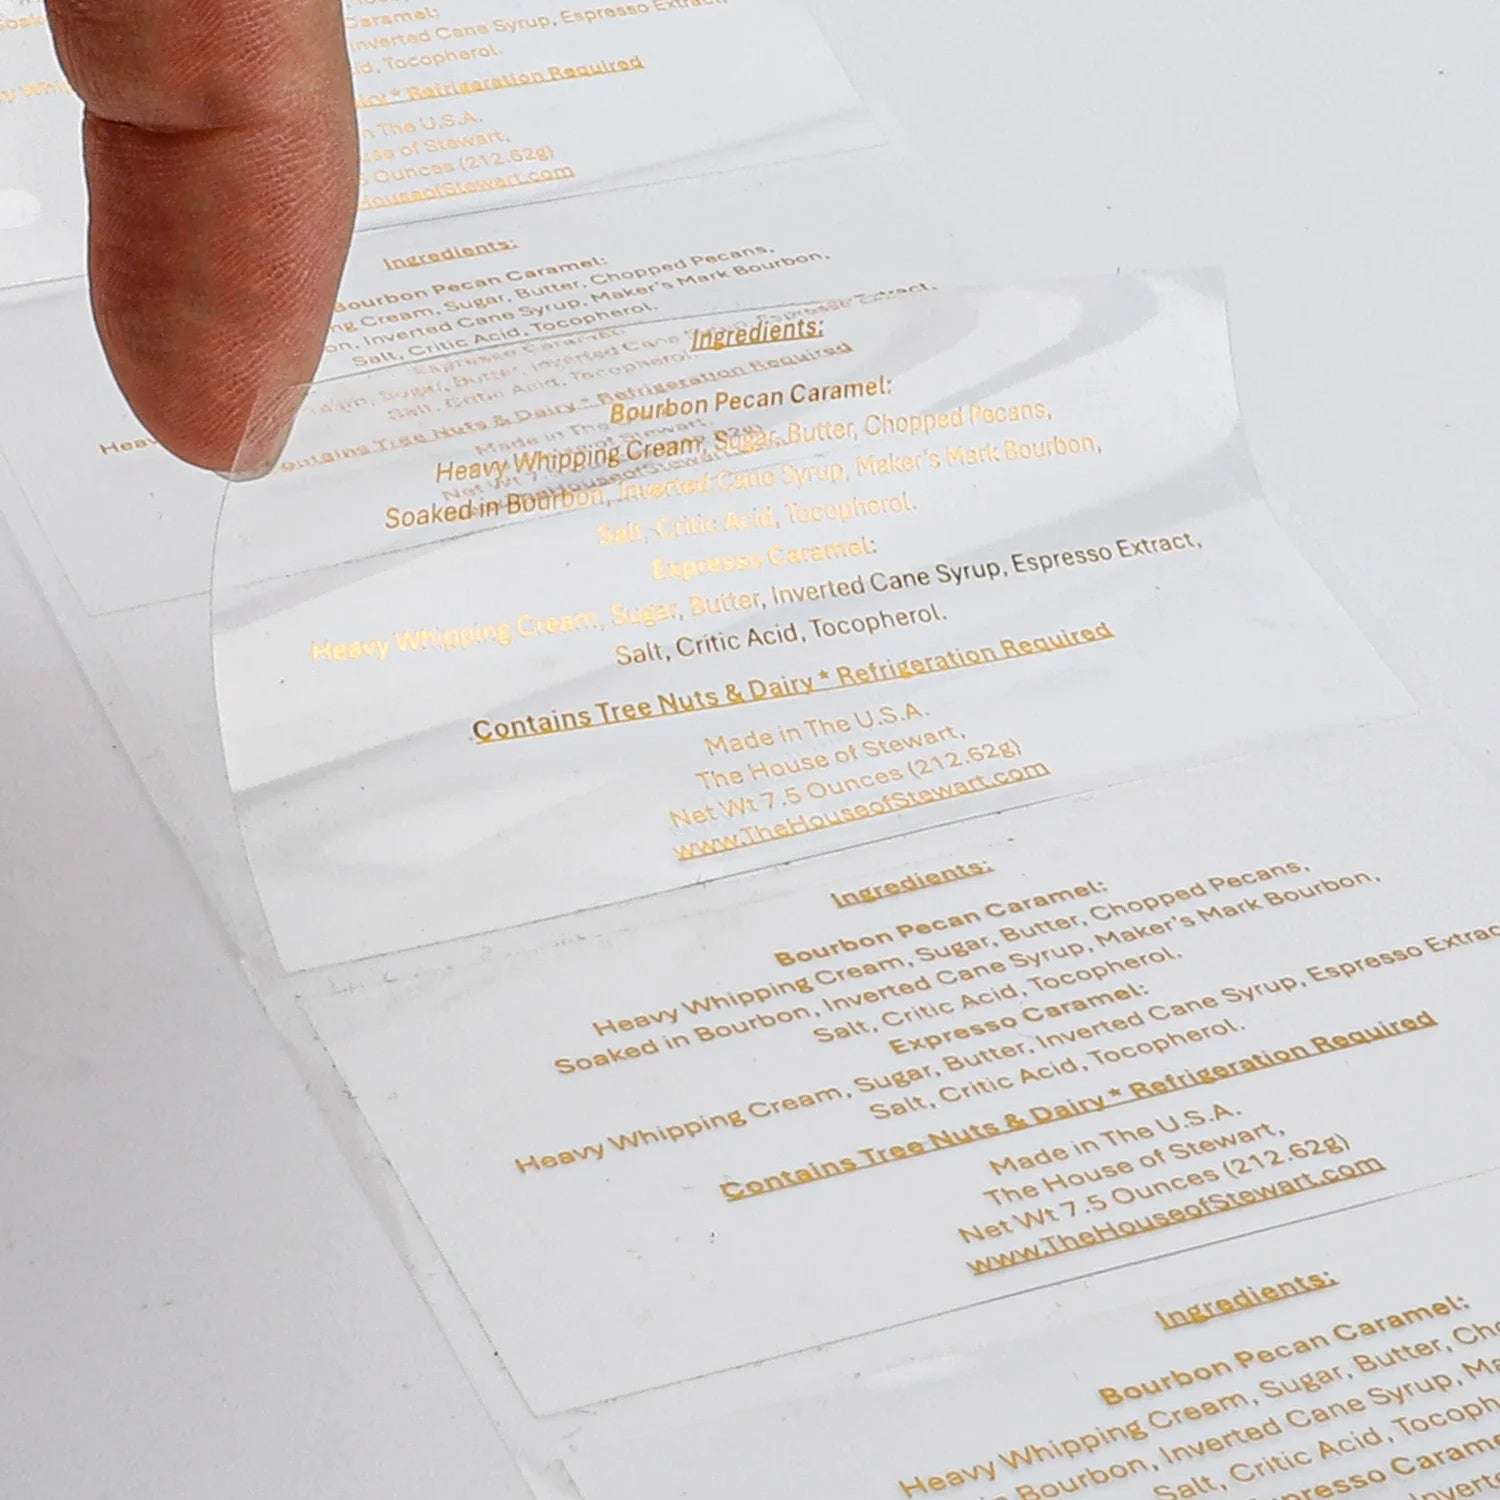 Caramel:
Inverted Cane Syrup, Espresso Extract,
Tocopherol.
* Refrigeration Required
The U.S.A.
of Stewart,
Ounces (212.62g)
HouseofStewart.com
Ingredients:
Bourbon Pecan Caramel:
Cream, Sugar, Butter, Chopped Pecans,
Inverted Cane Syrup, Maker's Mark Bourbon,
Salt, Critic Acid, Tocopherol.
Ingredients:
Bourbon Pecan Caramel:
Heavy Whipping Cream, Sugar, Butter, Chopped Pecans,
Soaked in Bourbon, Inverted Cane Syrup, Maker's Mark Bourbon,
Salt, Critic Acid, Tocopherol.
Expresso Caramel:
Heavy Whipping Cream, Sugar, Butter, Inverted Cane Syrup, Espresso Extract,
Salt, Critic Acid, Tocopherol.
Contains Tree Nuts & Dairy * Refrigeration Required
Made in The U.S.A.
The House of Stewart,
Net Wt 7.5 Ounces (212.62g)
www.TheHouseofStewart.com
Ingredients:
Bourbon Pecan Caramel:
Heavy Whipping Cream, Sugar, Butter, Chopped Pecans,
Soaked in Bourbon, Inverted Cane Syrup, Maker's Mark Bourbon,
Salt, Critic Acid, Tocopherol.
Expresso Caramel:
Heavy Whipping Cream, Sugar, Butter, Inverted Cane Syrup, Espresso Extrac
Salt, Critic Acid, Tocopherol.
Contains Tree Nuts & Dairy * Refrigeration Required
Made in The U.S.A.
The House of Stewart,
Net Wt 7.5 Ounces (212.62g)
www.TheHouseofStewart.com
Ingredients:
Bourbon Pecan Caramel:
Heavy Whipping Cream, Sugar, Butter, Cho
Bourbon, Inverted Cane Syrup, Ma
Salt, Critic Acid, Tocoph
presso Caramel